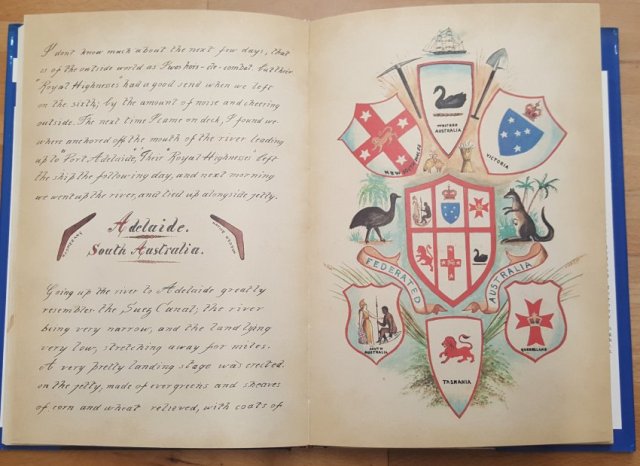 I don't know much about the next few days, that
is of the outside world as I was hors-de-combat. but their
"Royal Highnesses" had a good send when we left
on the sixth; by the amount of noise and cheering
outside. The next time I came on deck, I found we
where anchored off the mouth of the river leading
up to "Port Adelaide," Their "Royal Highnesses left
the ship the following day, and next morning
we went up the river, and tied up alongside jetty.
Adelaide.
South Australia.
Going up the river to Adelaide greatly
resembles the Suez Canal; the river
being very narrow, and the land lying
very low, stretching away for miles.
A very pretty landing stage was erected
on the jetty, made of evergreens and sheaves
of corn and wheat relieved, with coats of
WESTERN
AUSTRALIA
NEW SOUTH WALES
VICTORIA
FEDERATED
AUSTRALIA
SOUTH
AUSTRALIA
TASMANIA
QUEENSLAND